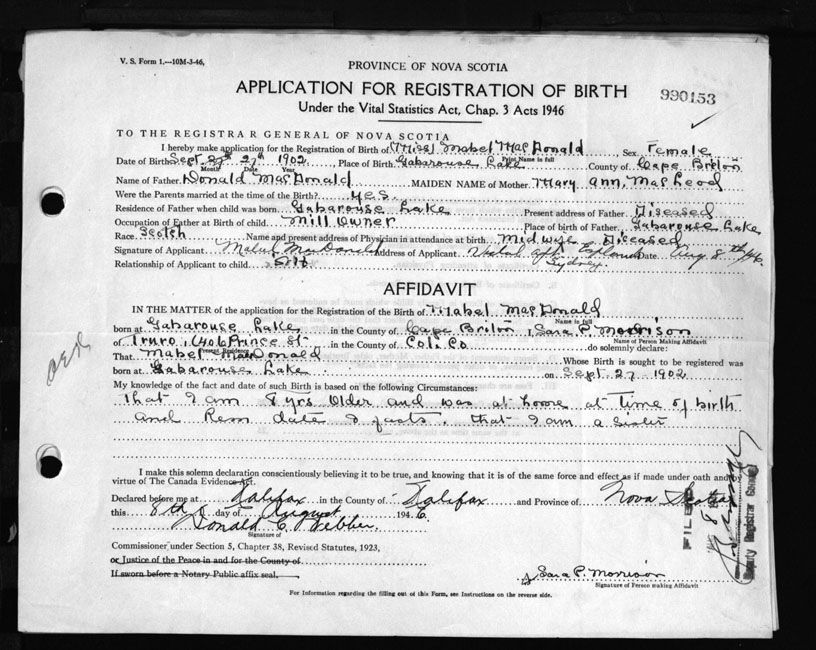 V. S. Form 1.—10M-3-46,
PROVINCE OF NOVA SCOTIA
APPLICATION FOR REGISTRATION OF BIRTH
990153
Under the Vital Statistics Act, Chap. 3 Acts 1946
TO THE REGISTRAR GENERAL OF NOVA SCOTIA
I hereby make application for the Registration of Birth of Miss Mabel MacDonald Sex Female
Print Name in full
Date of Birth Sept 27th 1902, Place of Birth Gabarouse Lake County of Cape Breton
Month Date Year
Name of Father Donald MacDonald MAIDEN NAME of Mother Mary Ann, MacLeod
Were the Parents married at the time of the Birth? Yes.
Residence of Father when child was born Gabarouse Lake Present address of Father Diseased
Occupation of Father at Birth of child Mill Owner Place of birth of Father Gabarouse Lake
Race Scotch Name and present address of Physician in attendance at birth Midwife Diseased
Signature of Applicant Mabel MacDonald Address of Applicant Sydney Date Aug 8th/46.
Relationship of Applicant to child Self
AFFIDAVIT
IN THE MATTER of the application for the Registration of the Birth of Mabel MacDonald
Print Name in full
born at Gabarouse Lake in the County of Cape Breton I, Sara P. Morrison
Name of Person Making Affidavit
of Truro, 406 Prince St in the County of Col. Co do solemnly declare:
Present Residence
That Mabel MacDonald Whose Birth is sought to be registered was
born at Gabarouse Lake on Sept. 27 1902
My knowledge of the fact and date of such Birth is based on the following Circumstances:
That I am 8 yrs older and was at home at time of birth
and Rem date & facts, that I am a sister
I make this solemn declaration conscientiously believing it to be true, and knowing that it is of the same force and effect as if made under oath and by
virtue of The Canada Evidence Act.
Declared before me at Halifax in the County of Halifax and Province of Nova Scotia
this 8th day of August 1946.
Donald C. Webber.
Signature of
Commissioner under Section 5, Chapter 38, Revised Statutes, 1923,
or Justice of the Peace in and for the County of
If sworn before a Notary Public affix seal.
Sara P. Morrison
Signature of Person Making Affidavit
For Information regarding the filling out of this Form, see Instructions on the reverse side.
FILED
Deputy Registrar General